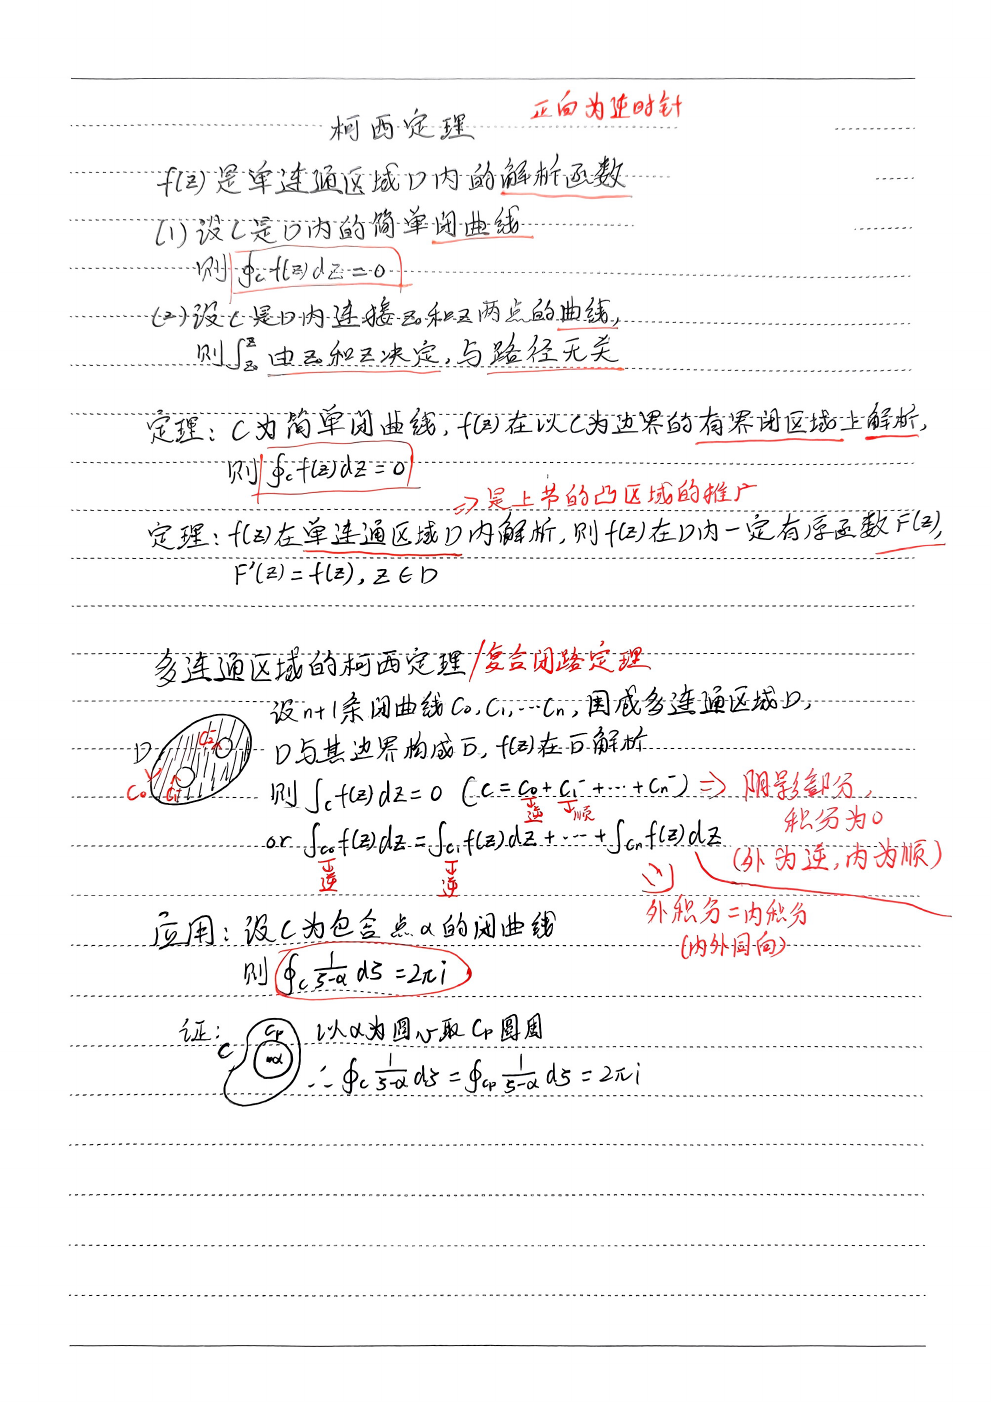 正向为逆时针
柯西定理
f(z)是单连通区域D内的解析函数
(1)设C是D内的简单闭曲线
则 ∮c f(z)dz=0
(2)设C是D内连接z₀和z两点的曲线,
则∫z₀^z 由z₀和z决定,与路径无关
定理: C为简单闭曲线,f(z)在以C为边界的有界闭区域上解析,
则 ∮c f(z)dz=0
⇒是上节的凸区域的推广
定理: f(z)在单连通区域D内解析,则f(z)在D内一定有原函数F(z),
F'(z)=f(z), z∈D
多连通区域的柯西定理/复合闭路定理
设n+1条闭曲线C₀,C₁,…Cn,围成多连通区域D,
D与其边界构成D̅,f(z)在D̅解析
D C₀ C₁ C₂
则∫c f(z)dz=0 (C=C₀+C₁⁻+…+Cn⁻) ⇒ 阴影部分,
逆 顺 积分为0
or ∫c₀ f(z)dz=∫c₁ f(z)dz+…+∫cn f(z)dz (外为逆,内为顺)
逆 逆
⇒ 外积分=内积分
(内外同向)
应用: 设C为包含点α的闭曲线
则 ∮c 1/(ζ-α) dζ=2πi
证: 以α为圆心取Cρ圆周
C Cρ α
∴ ∮c 1/(ζ-α) dζ=∮cρ 1/(ζ-α) dζ=2πi